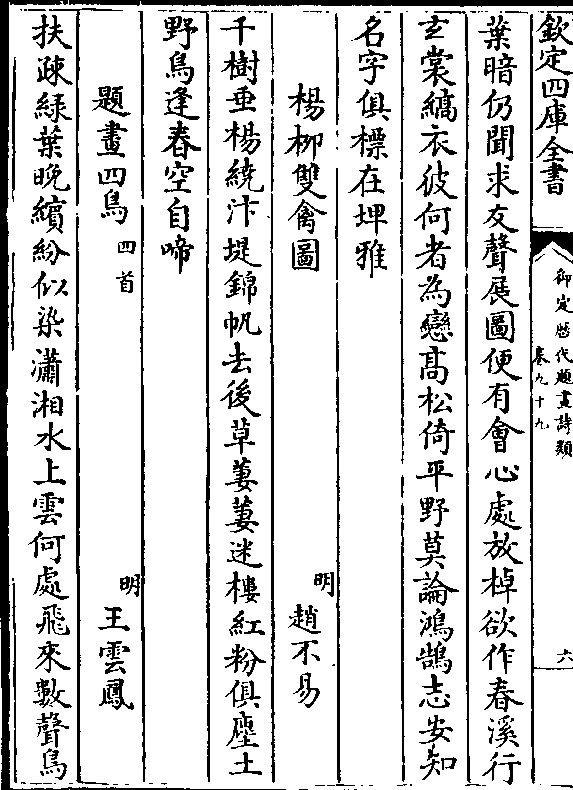 欽定四庫全書
御定歷代題畫詩類
卷九十九
六
葉暗仍聞求友聲展圖便有會心處放棹欲作春溪行
玄裳縞衣彼何者為戀髙松倚平野莫論鴻鵠志安知
名字俱標在埤雅
楊柳雙禽圖
明趙不易
千樹垂楊繞汴堤錦帆去後草萋萋迷樓紅粉俱塵土
野鳥逢春空自啼
題畫四鳥四首
明王雲鳳
扶疎綠葉晚繽紛似染瀟湘水上雲何處飛來數聲鳥